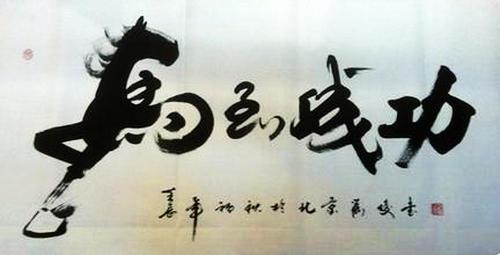 馬到成功
壬辰年初秋於北京